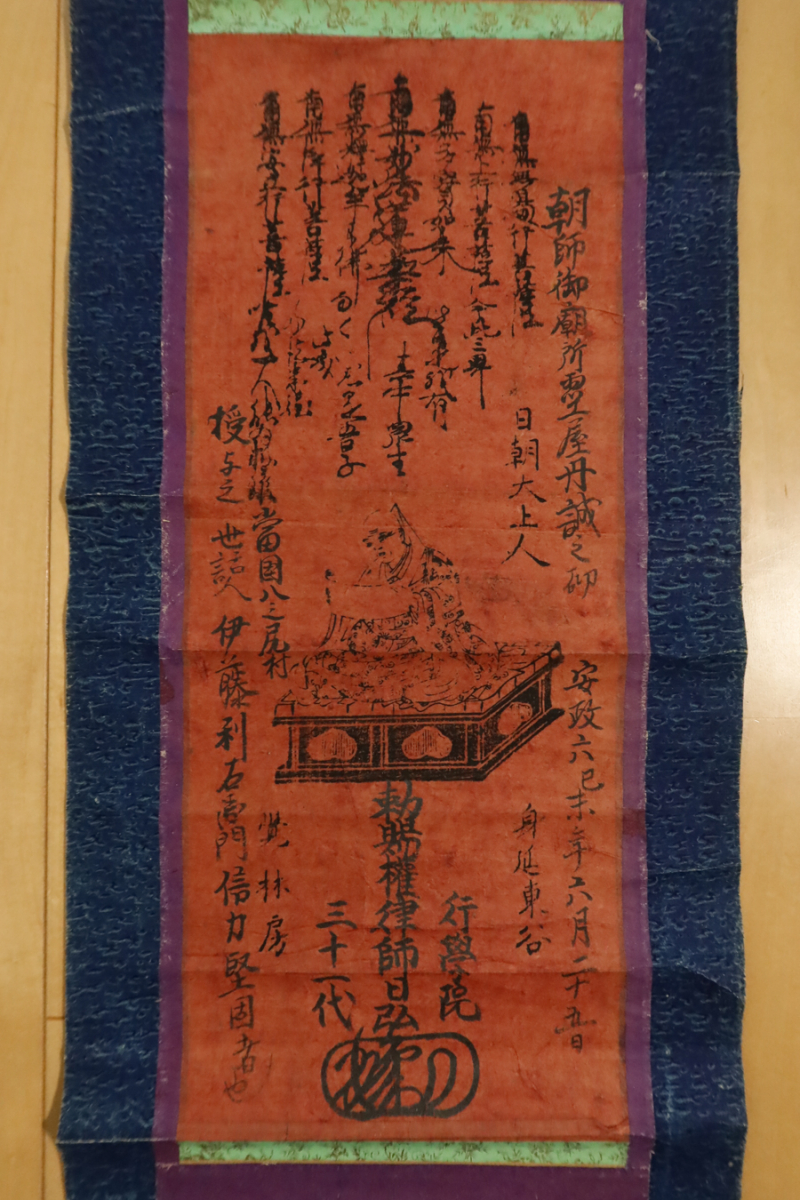 朝師御廟所
屋丹誠之砌
安政六己未年六月二十五日
南無
行菩薩
南無上行菩薩
今此三界
日朝大上人
身延東谷
南無多宝如来
皆是我有
行學院
南無妙法蓮華経
其中衆生
勅賜權律師日弘
南無釈迦牟尼佛
悉是吾子
三十一代
南無浄行菩薩
南無安立行菩薩
唯我一人
當国八之尻村
覺林房
授与之
世話人
伊藤利右衛門信力堅固者也